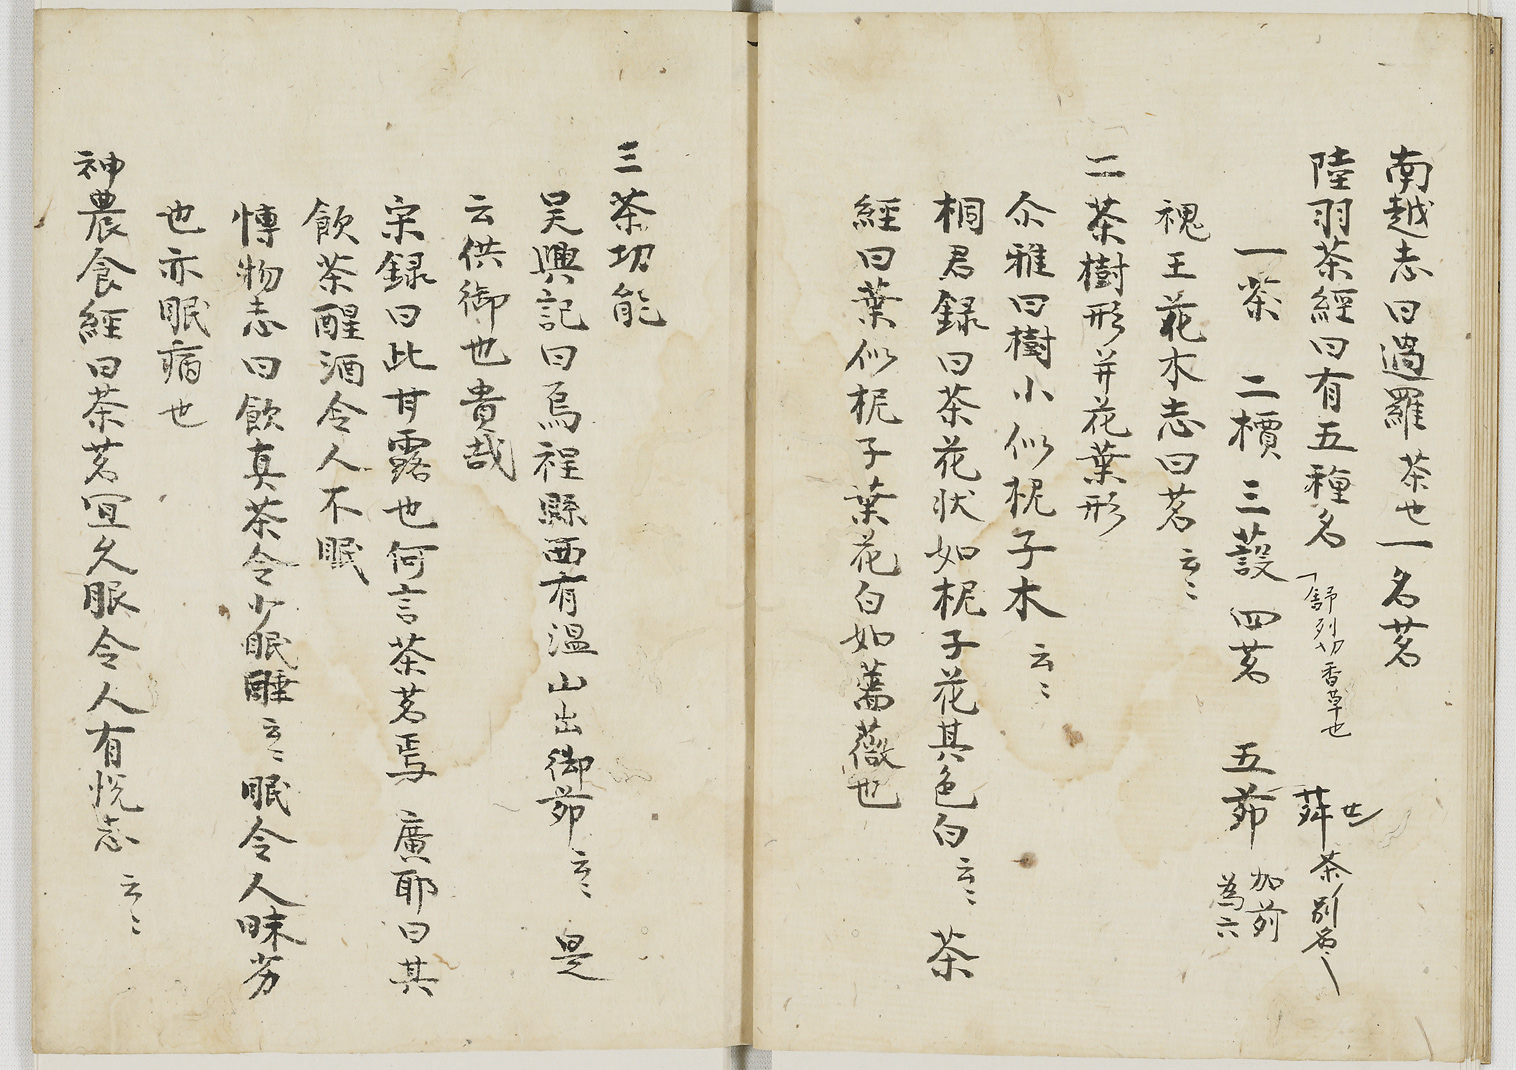 南越志曰過羅茶也一名茗
陸羽茶經曰有五種名
舒列切香草也
荈也
茶別名
一茶 二檟 三蔎 四茗 五荈
加前
為六
魏王花木志曰茗云〻
二茶樹形并花葉形
尒雅曰樹小似梔子木云〻
桐君録曰茶花状如梔子花其色白云〻茶
經曰葉似梔子葉花白如薔薇也
三茶功能
吴興記曰烏程縣西有温山出御荈云〻是
云供御也貴哉
宋録曰此甘露也何言茶茗焉 廣耶曰其
飲茶醒酒令人不眠
博物志曰飲真茶令少眠睡云〻眠令人昧劣
也亦眠病也
神農食經曰茶茗宜久服令人有悦志云〻